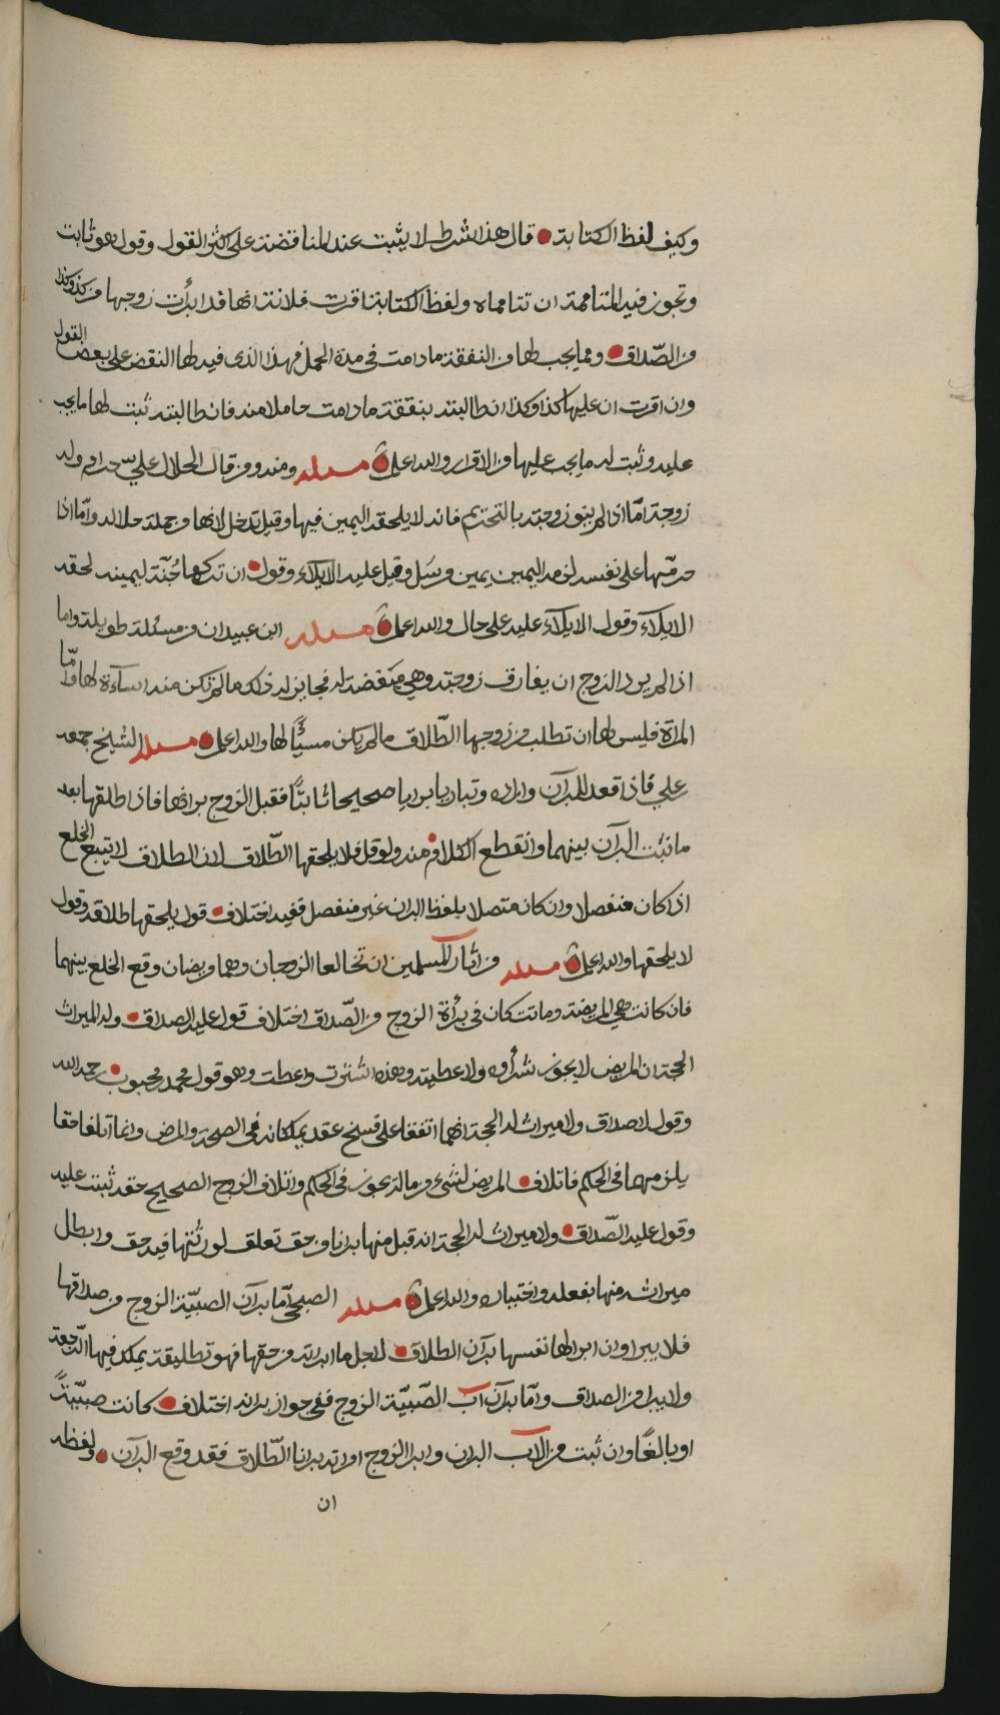 وكيف لفظ الكتابة قال هذا شرط لا يثبت عند المناقضة على اكثر القول وقول هو ثابت
وتجوز فيه المتاممة ان تتامماه ولفظ الكتابة اقرت فلانة انها قد ابرأت زوجها من كذا وكذا
من الصّداق ومما يجب لها من النفقة ما دامت في مدة الحمل فهذا الذي فيه لها النقض على بعض القول
وان اقرت ان عليها كذا وكذا ان طالبته بنفقة ما دامت حاملا منه فان طالبته ثبت لها ما يجب
عليه وثبت له ما يجب عليها من الاقرار والله اعلم مسئلة ومنه ومن قال الحلال عليّ حرام وله
زوجة امّا اذا لم ينو زوجته بالتحريم فانه لا يلحقه اليمين فيها وقيل تدخل لانها من جملة حلاله وامّا اذا
حرّمها على نفسه لزمه اليمين يمين مرسَل وقيل عليه الايلاء وقول ان تركها جُنّة ليمينه لحقه
الايلاء وقول الايلاء عليه على حال والله اعلم مسئلة ابن عبيدان من مسئلة طويلة واما
اذا لم يرد الزوج ان يفارق زوجته وهي مبغضة له فجايز له ذلك ما لم تكن منه اسآءة لها وامّا
المراة فليس لها ان تطلب من زوجها الطّلاق ما لم يكن مسيًّا لها والله اعلم مسئلة الشيخ جمعه
علي فاذا قعد للبرآن واراده وتباريا برايا صحيحا ثابتًا فقبل الزوج برانها فاذا طلقها بعد
ما ثبت البرآن بينهما وانقطع الكلام منه ولو قل فلا يلحقها الطّلاق لان الطلاق لا يتبع الخلع
اذا كان منفصلا وان كان متصلا بلفظ البران غير منفصل ففيه اختلاف قول يلحقها طلاقه وقول
لا يلحقها والله اعلم مسئلة من اثار المسلمين ان تخالعا الزوجان وهما مريضان وقع الخلع بينهما
فان كانت هي المريضة وماتت كان في برأة الزوج من الصّداق اختلاف قول عليه الصداق وله الميراث
الحجة ان المريض لا يجوز شرأوه ولا عطيته وهذه اشترت واعطت وهو قول محمد بن محبوب رحمه الله
وقول لا صداق ولا ميراث له الحجة انهما اتفقا على فسخ عقد يملكانه في الصحة والمرض وانما اتلفا حقا
يلزمهما في الحكم فاتلاف المريض لشيء من ماله لا يجوز في الحكم واتلاف الزوج الصحيح حقه ثبت عليه
وقول عليه الصّداق ولا ميراث له الحجة انه قبل منها برانا من حق تعلق لورثتها فيه حق وابطل
ميراثه منها بفعله واختياره والله اعلم مسئلة الصبحي امّا برآن الصبيّة الزوج من صداقها
فلا يبرا وان ابرا لها نفسها برآن الطلاق لاجل ما ابراته من حقها فهو تطليقة يملك فيها الرّجعة
ولا يبرا من الصداق وامّا برآن اب الصّبيّة الزوج ففي جواز برانه اختلاف كانت صبيّةً
او بالغًا وان ثبت من الاب البران وابرا الزوج امراته برانا الطّلاق فقد وقع البرآن ولفظه
ان